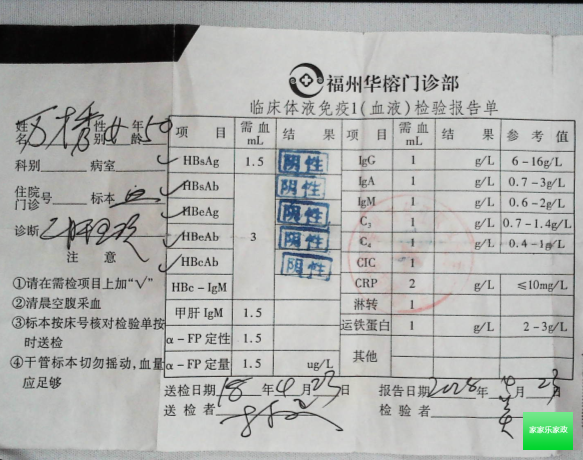 福州华榕门诊部
临床体液免疫1(血液)检验报告单
姓名 性别 女 年龄 50
科别 病室
住院门诊号 标本 血
诊断
注 意
①请在需检项目上加"√"
②清晨空腹采血
③标本按床号核对检验单按时送检
④干管标本切勿摇动,血量应足够
项 目 需血mL 结 果 项 目 需血mL 结 果 参 考 值
√ HBsAg 1.5 阴性 IgG 1 g/L 6-16g/L
√ HBsAb 3 阴性 IgA 1 g/L 0.7-3g/L
√ HBeAg 阴性 IgM 1 g/L 0.6-2g/L
√ HBeAb 阴性 C₃ 1 g/L 0.7-1.4g/L
√ HBcAb 阴性 C₄ 1 g/L 0.4-1g/L
HBc-IgM CIC 1
CRP 2 g/L ≤10mg/L
甲肝 IgM 1.5 淋转 1
α-FP 定性 1.5 运铁蛋白 1 g/L 2-3g/L
α-FP 定量 1.5 ug/L 其他
送检日期 18 年 4 月 23 日 报告日期 年 4 月 23 日
送 检 者 检 验 者
家家乐家政